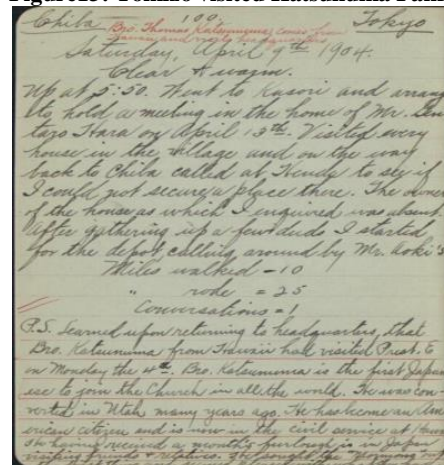 Chiba 100 Tokyo
Bro. Thomas Katsunuma comes from
Hawaii and visits headquarters
Saturday, April 9th 1904.
Clear & warm.
Up at 5:50. Went to Kasori and arrang
to hold a meeting in the home of Mr.
taro Hara on April 13th. Visited every
house in the village and on the way
back to Chiba called at to see if
I could not secure a place there. The owner
of the house at which I enquired was absent
After gathering up a few duds I started
for the depot calling around by Mr. Aoki's
Miles walked - 10
" rode = 25
Conversations = 1
P.S. Learned upon returning to headquarters, that
Bro. Katsunuma from Hawaii had visited Prest. E
on Monday the 4th. Bro. Katsunuma is the first Japan
ese to join the Church in all the world. He was con-
verted in Utah many years ago. He has become an Am
erican citizen and is now in the civil service at
He having received a month's furlough is in Japan
visiting friends & relatives. He